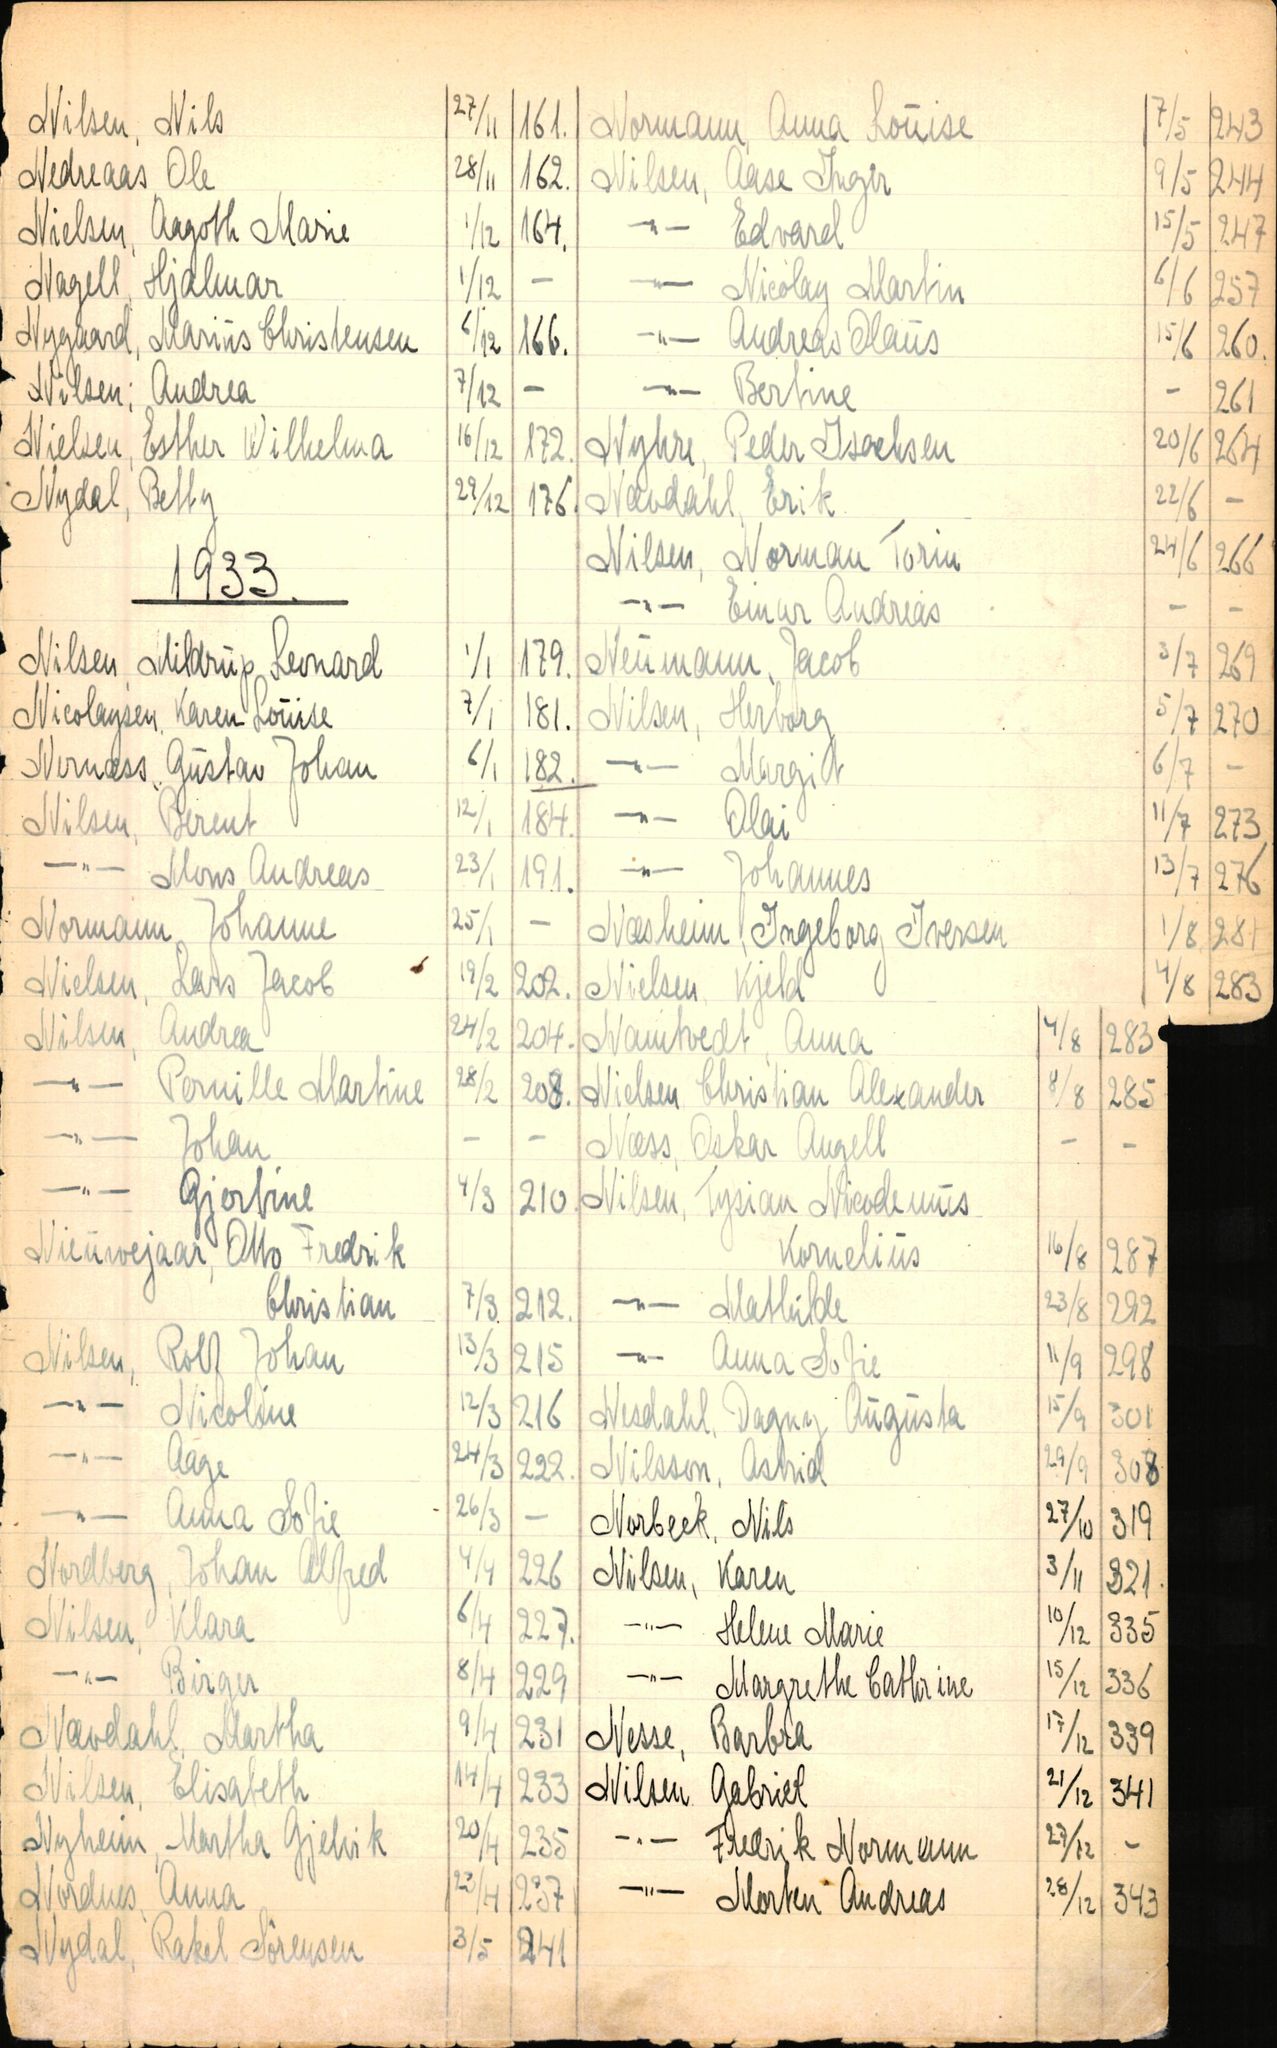 Nilsen, Nils 27/11 161.
Nedreaas, Ole 28/11 162.
Nielsen, Aagoth Marie 1/12 164.
Nagell, Hjalmar 1/12 -
Nygaard, Marius Christensen 6/12 166.
Nilsen, Andrea 7/12 -
Nielsen, Esther Wilhelma 16/12 172.
Nydal, Betty 29/12 176.
1933.
Nilsen, Mildrup Leonard 1/1 179.
Nicolaysen, Karen Louise 7/1 181.
Nornæss, Gustav Johan 6/1 182.
Nilsen, Berent 12/1 184.
—"— Mons Andreas 23/1 191.
Normann, Johanne 25/1 -
Nielsen, Lars Jacob 19/2 202.
Nilsen, Andrea 24/2 204.
—"— Pernille Martine 28/2 208.
—"— Johan - -
—"— Gjertine 4/3 210
Nieuwejaar, Otto Fredrik
Christian 7/3 212.
Nilsen, Rolf Johan 13/3 215
—"— Nicoline 12/3 216
—"— Aage 24/3 222.
—"— Anna Sofie 26/3 -
Nordberg, Johan Alfred 4/4 226
Nilsen, Klara 6/4 227.
—"— Birger 8/4 229
Nævdahl, Martha 9/4 231
Nilsen, Elisabeth 14/4 233
Nyheim, Martha Gjelvik 20/4 235
Nordnes, Anna 23/4 237
Nydal, Rakel Sörensen 3/5 241
Normann, Anna Louise 7/5 243
Nilsen, Aase Inger 9/5 244
—"— Edvard 15/5 247
—"— Nicolay Martin 6/6 257
—"— Andreas Olaus 15/6 260.
—"— Bertine - 261
Nyhre, Peder Isachsen 20/6 264
Nævdahl, Erik 22/6 -
Nilsen, Norman Torin 24/6 266
—"— Einar Andreas - -
Neumann, Jacob 3/7 269
Nilsen, Herborg 5/7 270
—"— Margit 6/7 -
—"— Olai 11/7 273
—"— Johannes 13/7 276
Næsheim, Ingeborg Iversen 1/8 281
Nielsen, Kjeld 4/8 283
Namtvedt, Anna 4/8 283
Nielsen Christian Alexander 8/8 285
Næss, Oskar Angell - -
Nilsen, Tysian Nicodemus
Kornelius 16/8 287
—"— Mathilde 23/8 292
—"— Anna Sofie 11/9 298
Nesdahl, Dagny Augusta 15/9 301
Nilsson, Astrid 29/9 308
Norbeck, Nils 27/10 319
Nilsen, Karen 3/11 321.
—"— Helene Marie 10/12 335
—"— Margrethe Cathrine 15/12 336
Nesse, Barbra 17/12 339
Nilsen Gabriel 21/12 341
—"— Fredrik Normann 27/12 -
—"— Morten Andreas 28/12 343